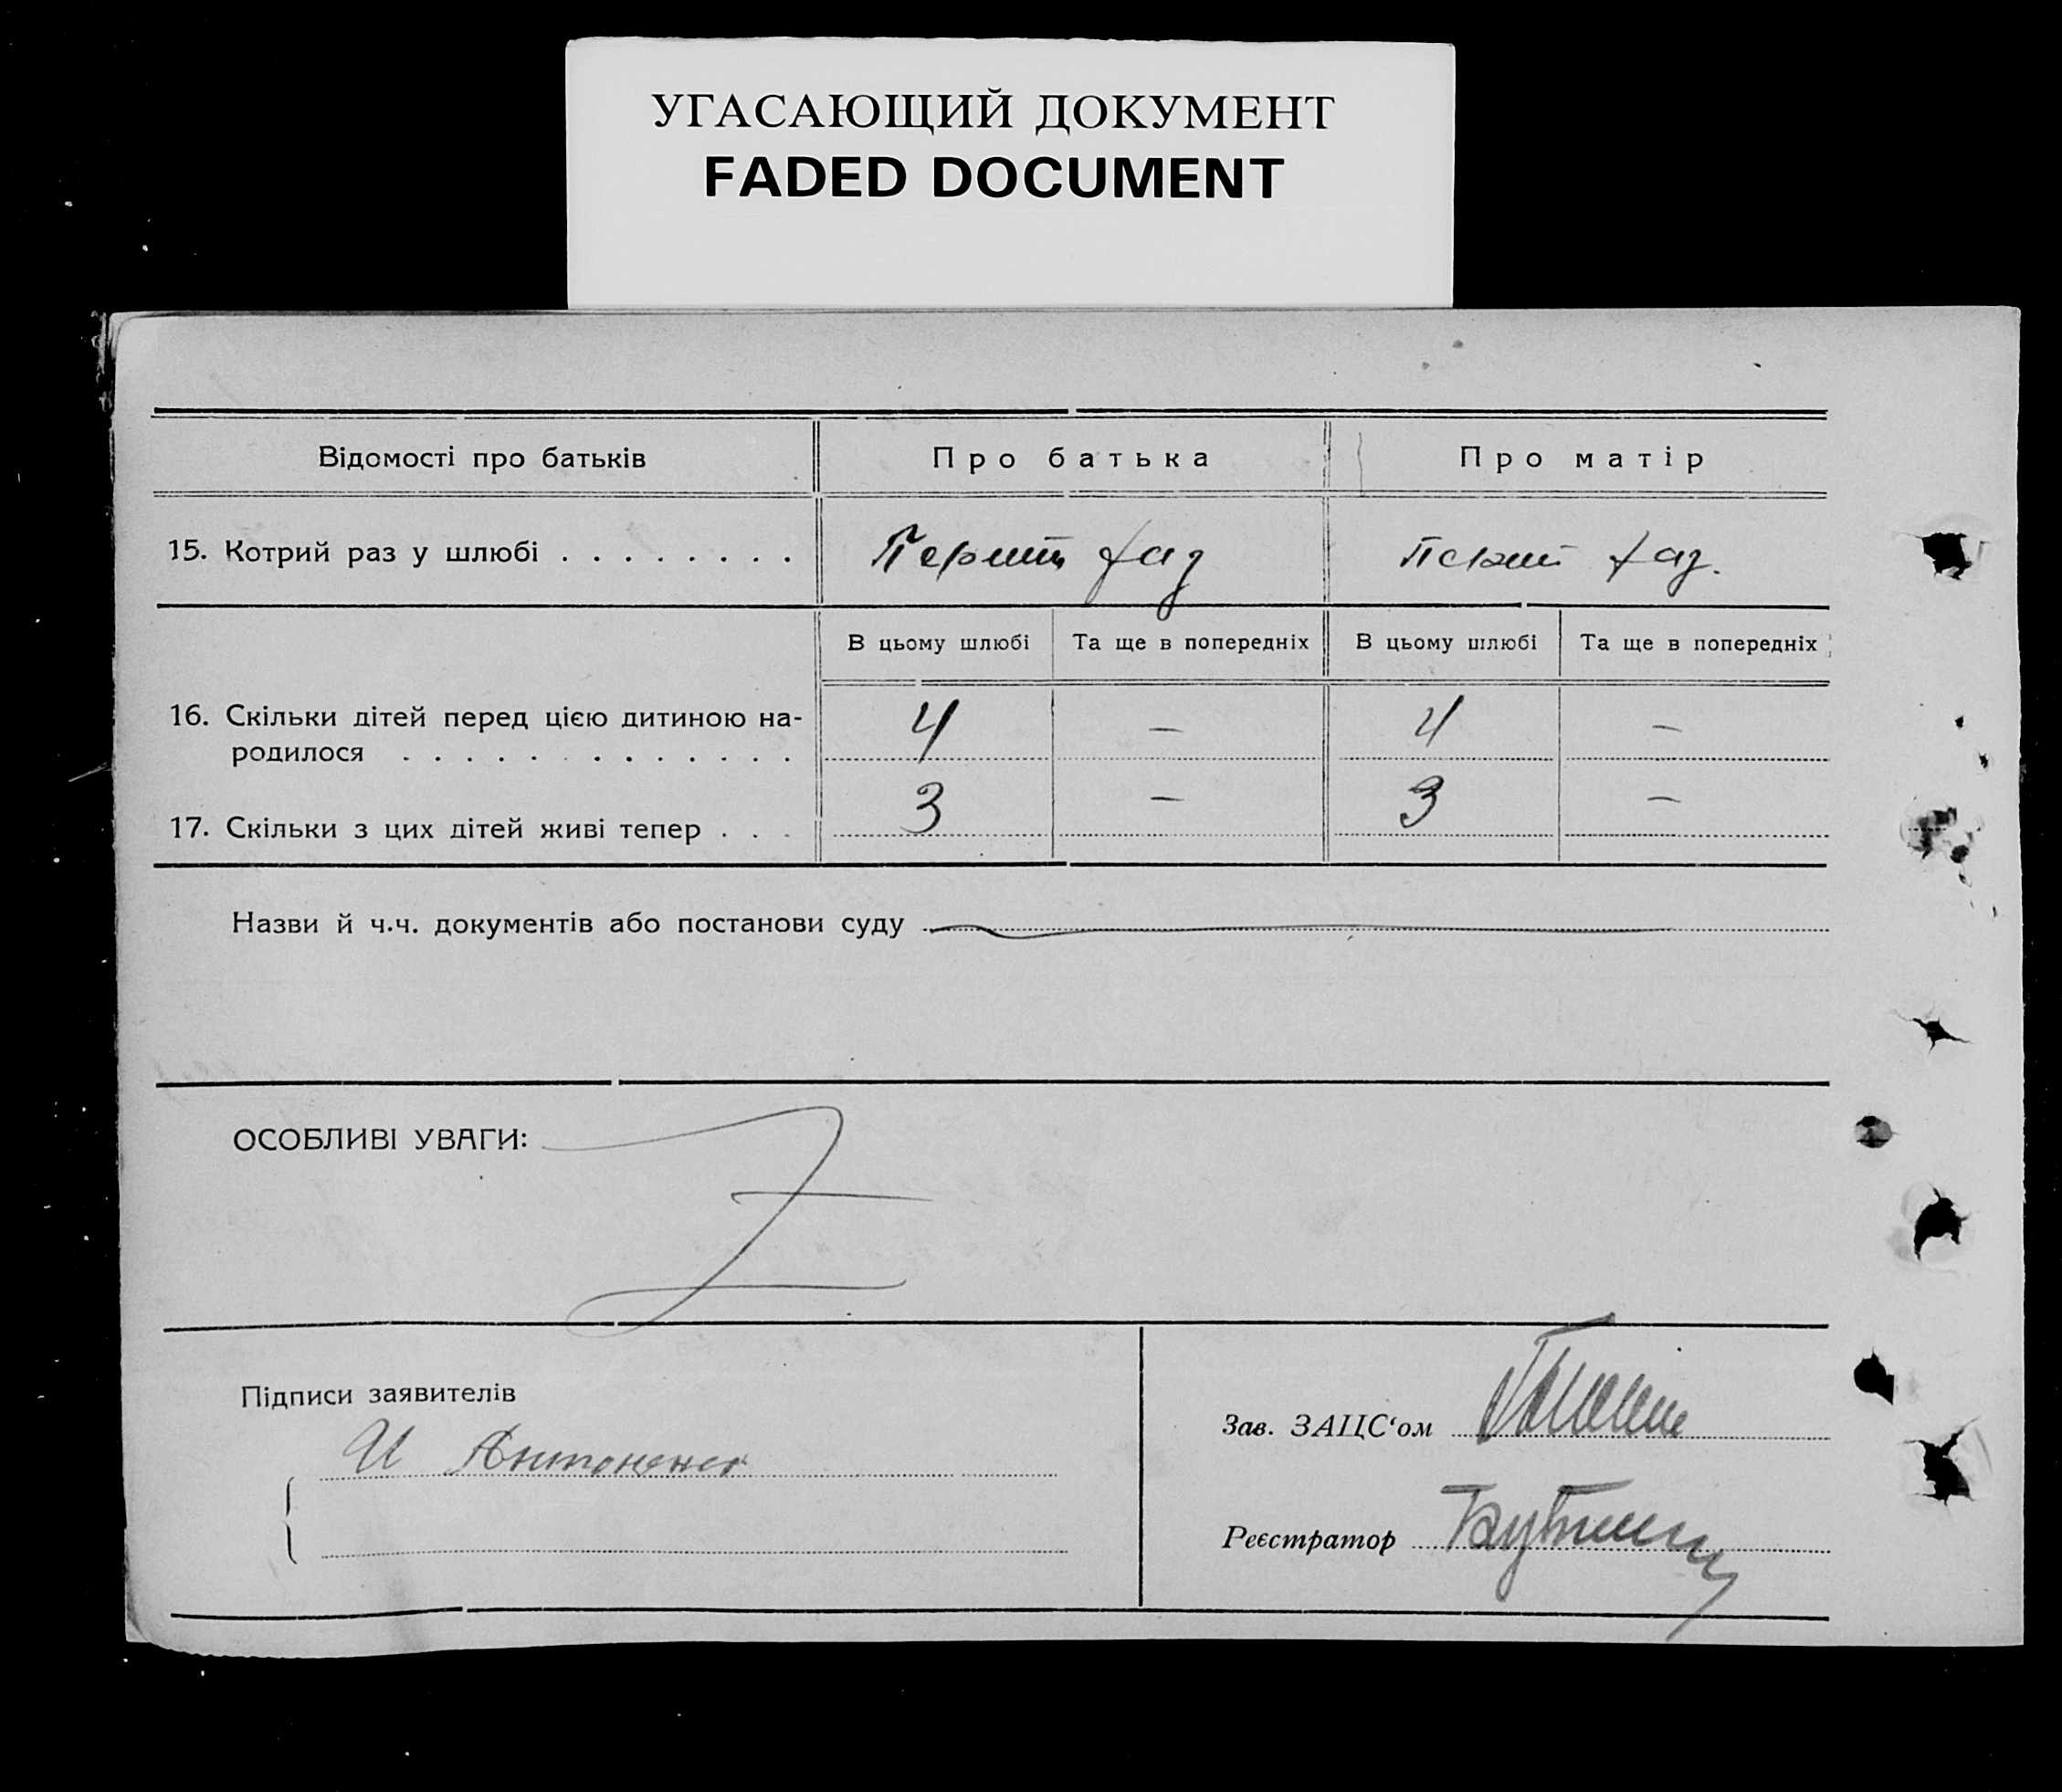 УГАСАЮЩИЙ ДОКУМЕНТ
FADED DOCUMENT
Відомості про батьків Про батька Про матір
15. Котрий раз у шлюбі . . . . . . . . Перший раз Перший раз.
В цьому шлюбі Та ще в попередніх В цьому шлюбі Та ще в попередніх
16. Скільки дітей перед цією дитиною на-
родилося . . . . . . . . . . . . . 4 — 4 —
17. Скільки з цих дітей живі тепер . . . 3 — 3 —
Назви й ч.ч. документів або постанови суду
ОСОБЛИВІ УВАГИ:
Підписи заявителів
И Антоненко
Зав. ЗАЦС‘ом
Реєстратор